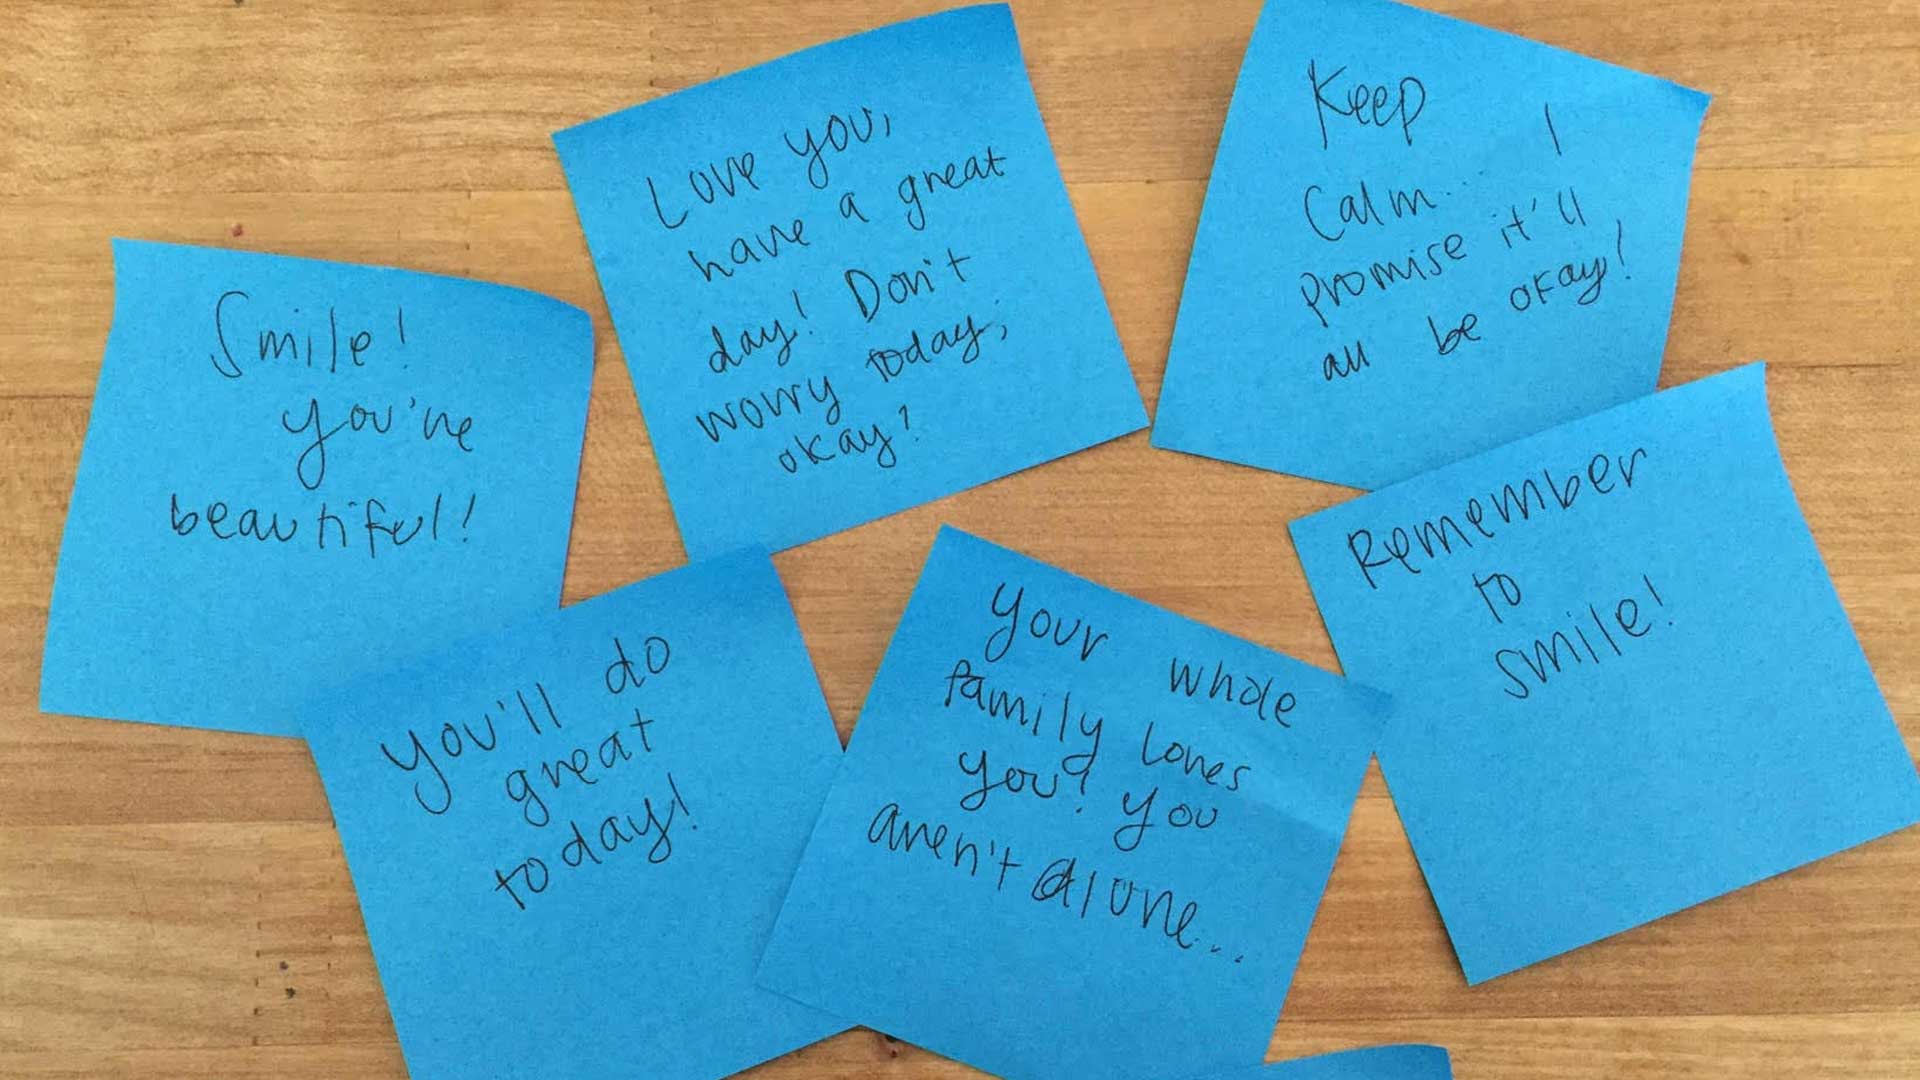 Smile!
you're
beautiful!
Love you,
have a great
day! Don't
worry today,
okay?
Keep
Calm... I
promise it'll
all be okay!
you'll do
great
today!
your whole
family loves
you? you
aren't alone...
Remember
to
smile!